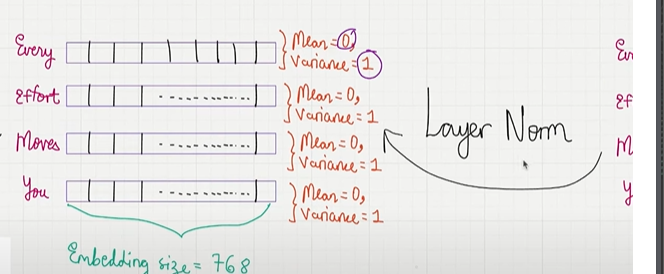 Every
Mean = 0,
Variance = 1
Effort
Mean = 0,
Variance = 1
Moves
Mean = 0,
Variance = 1
You
Mean = 0,
Variance = 1
Layer Norm
Embedding size = 768
Ev
Ef
M
Y